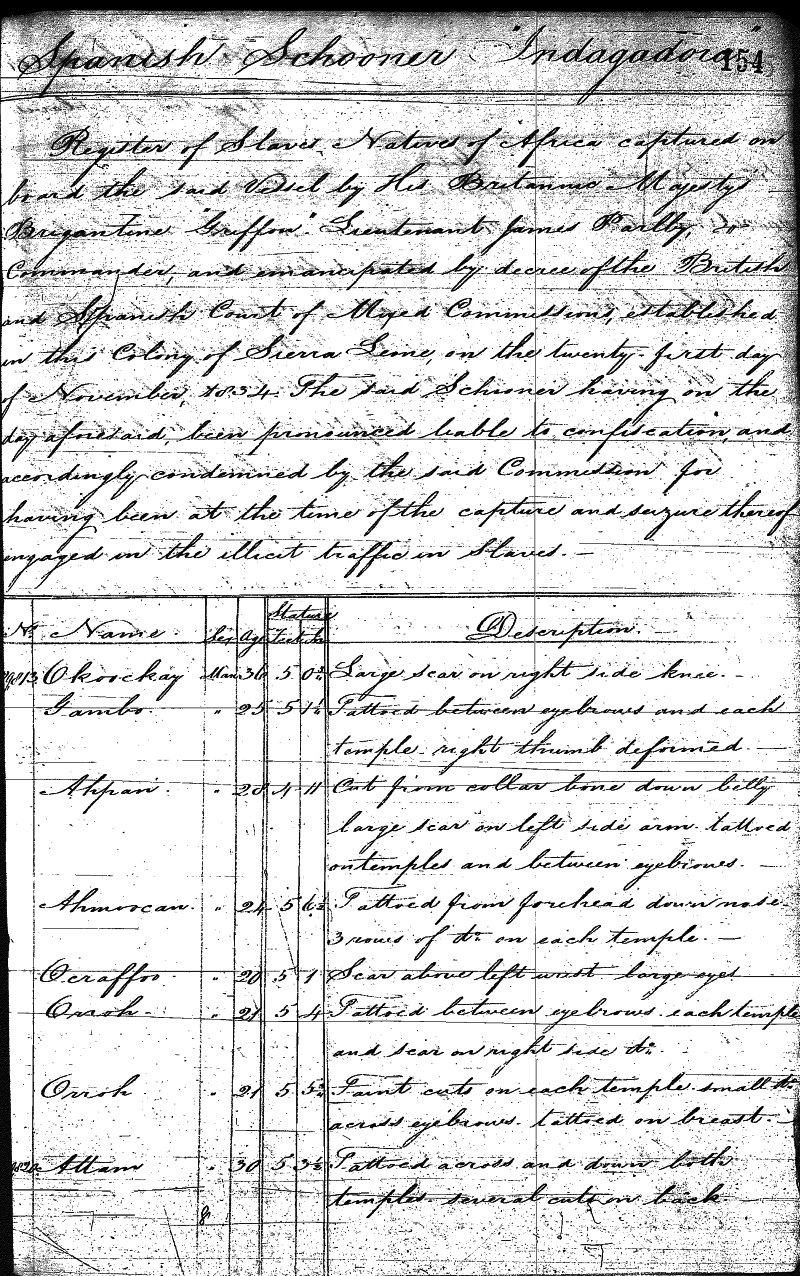 Spanish Schooner "Indagadora" 154
Register of Slaves Natives of Africa captured on
board the said Vessel by His Britannic Majestys
Brigantine "Griffon" Lieutenant James
Commander, and emancipated by decree of the British
and Spanish Court of Mixed Commissions, established
in this Colony of Sierra Leone, on the twenty-first day
of November, 1834. The said Schooner having on the
day aforesaid, been pronounced liable to confiscation, and
accordingly condemned by the said Commission for
having been at the time of the capture and seizure thereof
engaged in the illicit traffic in Slaves. —
No. Name. Sex Age Stature Feet In Description. —
Okoockay Man 36 5 Large scar on right side knee. —
Gambo. " 25 5 Tattoed between eyebrows and each
temple. right thumb deformed. —
Ahpan. " 28 4 11 Cut from collar bone down belly
large scar on left side arm. tattoed
on temples and between eyebrows. —
Ahmoocan. " 24 5 Tattoed from forehead down nose.
3 rows of do. on each temple. —
Ocraffoo. " 20 5 1 Scar above left wrist large eyes
Orroh. " 21 5 4 Tattoed between eyebrows. each temple
and scar on right side do.
Orroh " 21 5 Faint cuts on each temple. small do.
across eyebrows. tattoed on breast. —
Attam " 30 5 3½ Tattoed across and down both
temples. several cuts on back